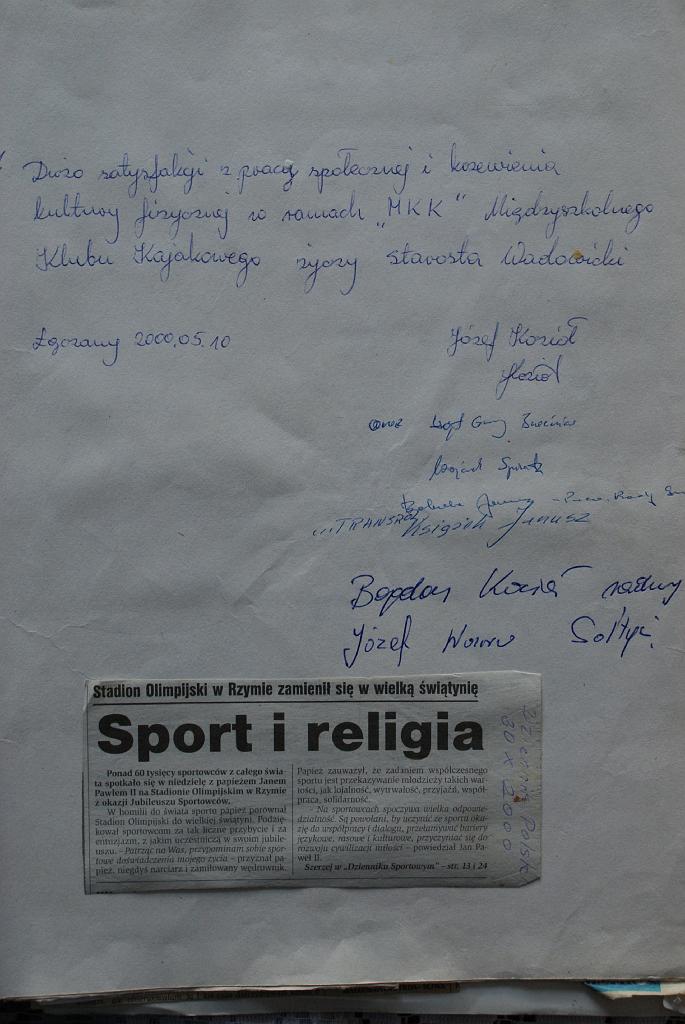 Dużo satysfakcji z pracy społecznej i krzewienia
kultury fizycznej w ramach "MKK" Międzyszkolnego
Klubu Kajakowego życzy Starosta Wadowicki
Łączany 2000.05.10
Józef Kozioł
Kozioł
oraz
Książek Janusz
Bogdan Kozioł radny
Józef Sołtys
Stadion Olimpijski w Rzymie zamienił się w wielką świątynię
Sport i religia
Ponad 60 tysięcy sportowców z całego świa-
ta spotkało się w niedzielę z papieżem Janem
Pawłem II na Stadionie Olimpijskim w Rzymie
z okazji Jubileuszu Sportowców.
W homilii do świata sportu papież porównał
Stadion Olimpijski do wielkiej świątyni. Podzię-
kował sportowcom za tak liczne przybycie i za
entuzjazm, z jakim uczestniczą w swoim jubile-
uszu. – Patrząc na Was, przypominam sobie spor-
towe doświadczenia mojego życia – przyznał pa-
pież, niegdyś narciarz i zamiłowany wędrownik.
Papież zauważył, że zadaniem współczesnego
sportu jest przekazywanie młodzieży takich warto-
ści, jak lojalność, wytrwałość, przyjaźń, współ-
praca, solidarność.
– Na sportowcach spoczywa wielka odpowie-
dzialność. Są powołani, by uczynić ze sportu oka-
zję do współpracy i dialogu, przełamywać bariery
językowe, rasowe i kulturowe, przyczyniać się do
rozwoju cywilizacji miłości – powiedział Jan Pa-
weł II.
Szerzej w „Dzienniku Sportowym” – str. 13 i 24
Dziennik Polski
30 X 2000